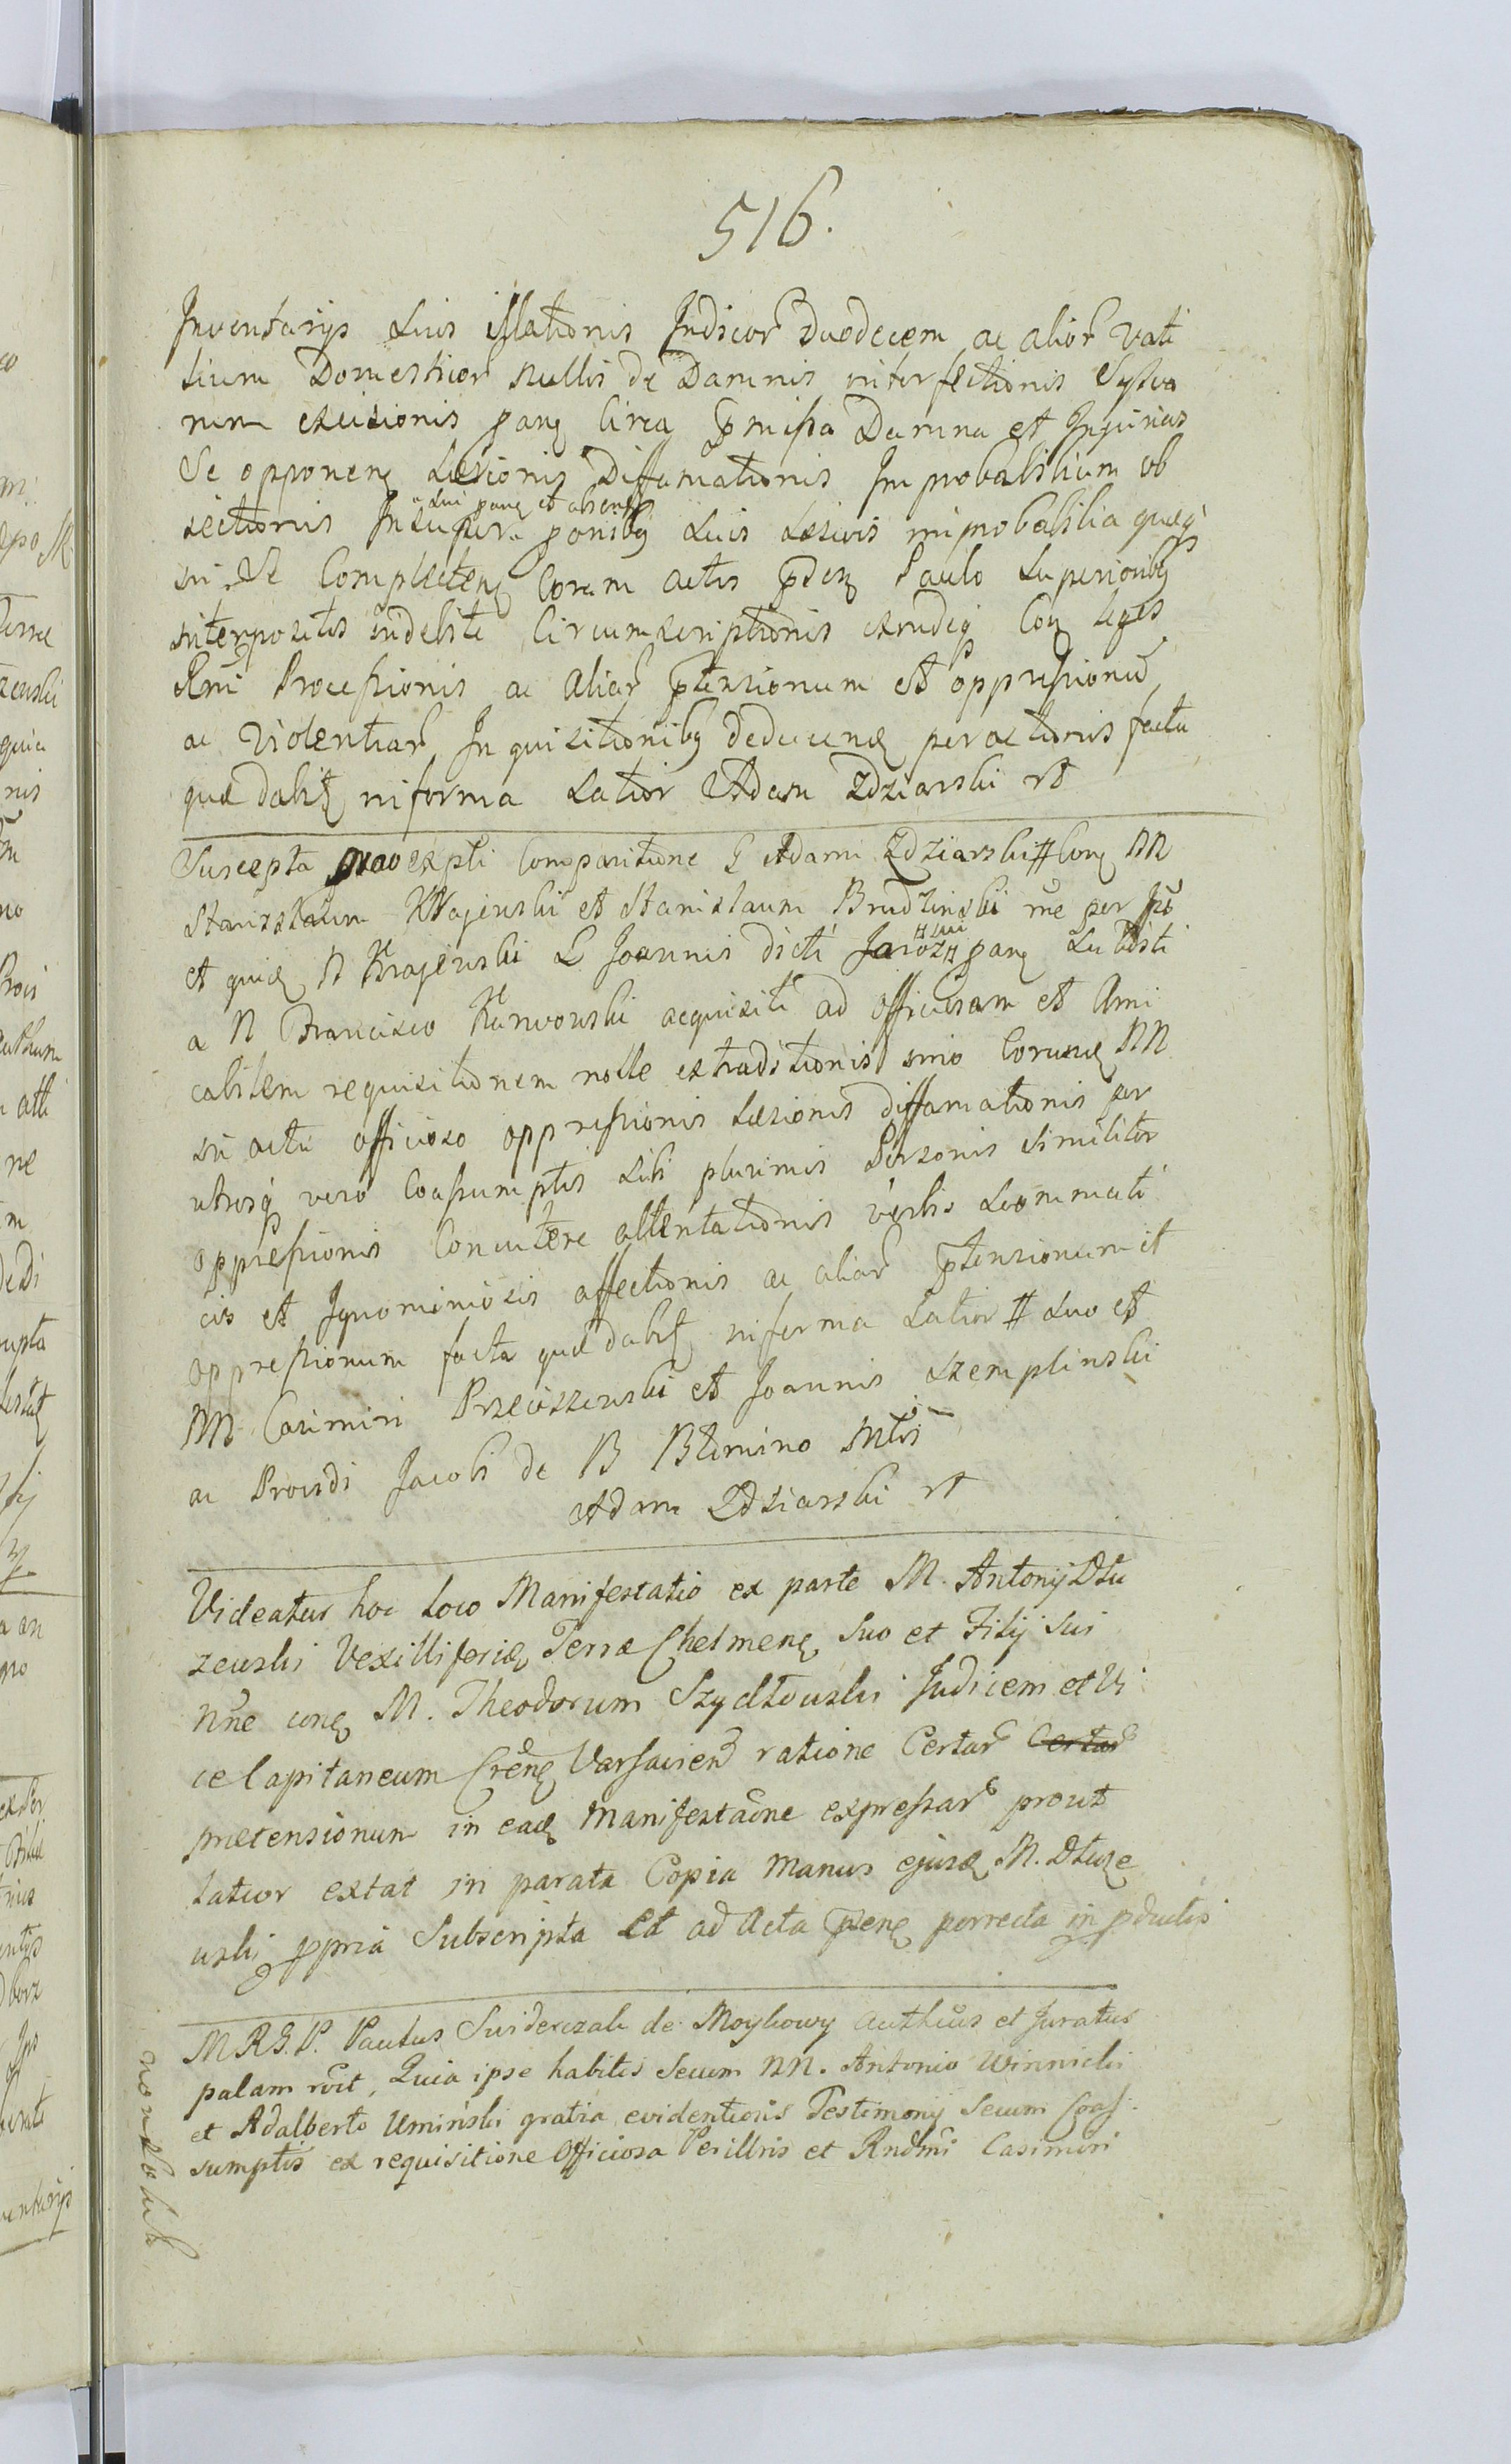 516.
Inventarijs suis illationis Indicor Duodecem ac alior Vati
sium Domesticor nullis de Damnis interfectionis Sylva
rum excisionis pang Circa pmissa Damna et Injurias
Se opponeng Læsionis Diffamationis Improbabilium ob
jectionis Insuper ponibg suis Læsivis improbabilia quæq
in Se Complecteng Coram actis pdcz Paulo Superioribg
interpositis indebite Circumscriptionis exindeq Con leges
Rni Processionis ac aliar ptensionum et oppressionu
ac Violentiar Inquisitionibg deducend peractionis facta
quæ dabit informa Latior Adam Zdziarski rt
Suscepta Comparitione G Adam Zdziarski # Cong NN
Stanislaum Krajewski et Stanislaum Brudzinski rne per
et quid N Krajewski L Joannis dicti Jaroz # pang Subditi
# sui
a N Francisco Karwowski acquisiti ad officiosam et Ami
cabilem requisitionem nolle extraditionis imo Corund NN
in actu officioso oppressionis Læsionis diffamationis per
utrosq vero Coassumptis sibi plurimis Personis similiter
oppressionis Concutere attentationis verbis scommati
cis et Ignominiosis affectionis ac aliar ptensionum et
oppressionum facta quæ dabit informa Latior # suo et
NN Casimiri Przeciszewski et Joannis Szemplinski
ac Providi Jacobi de B Blomino Mtris
Adam Zdziarski rt
Videatur hoc loco Manifestatio ex parte M. Antonij Dlu
zewski Vexilliferid Terræ Chelmeng Suo et Filij Sui
Nne cong M. Theodorum Szydlowski Judicem et Vi
ceCapitaneum Creng Varsavien ratione Certar Certar
prætensionum in ead Manifestaone expressar prout
latior extat in parata Copia Manus ejusd M. Dluze
wski ppria Subscripta Et ad Acta pseng porrecta in pductis
MRG.P. Paulus Swiderczak de Moykowy authcus et Juratus
palam rcit, Quia ipse habitis Secum NN. Antonio Winnicki
et Adalberto Uminski gratia evidentioris Testimony Secum Coas-
sumptis ex requisitione Officiosa Perillris et Rndmi Casimiri